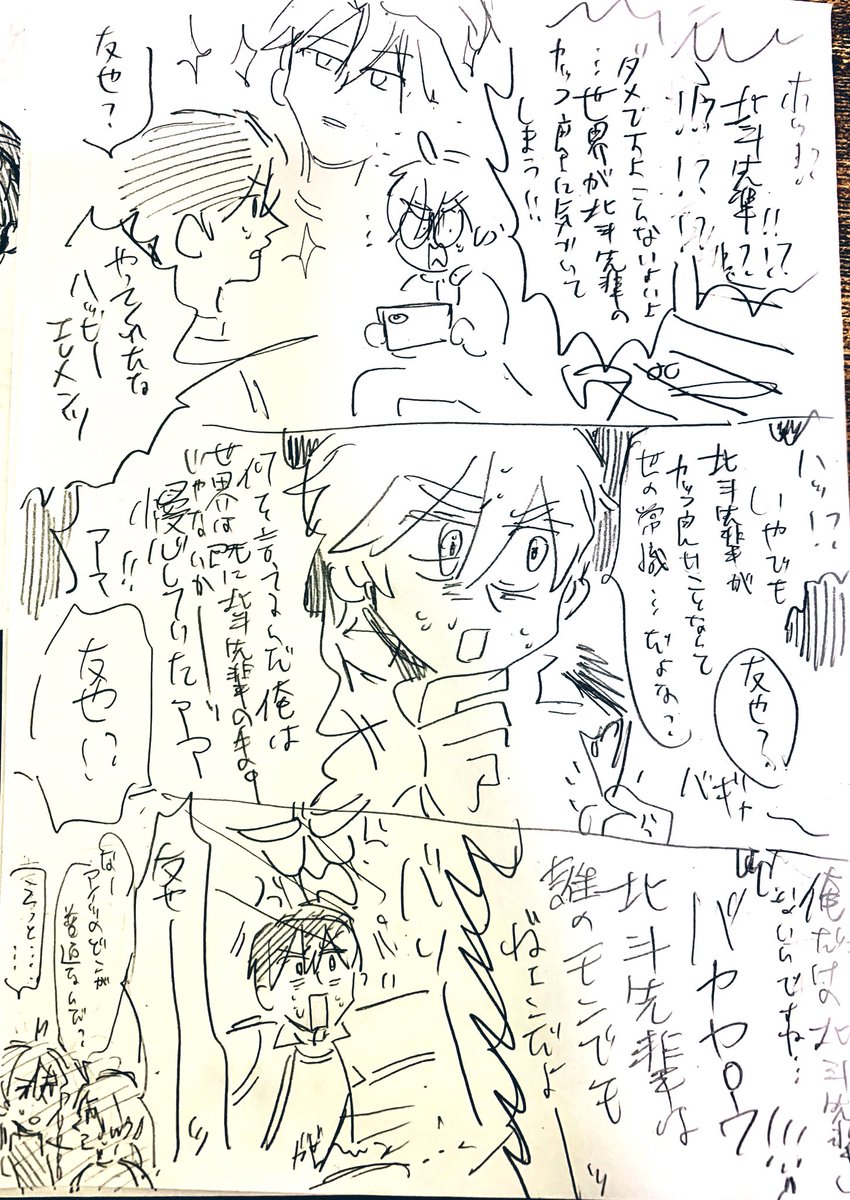 北斗先輩!!
!?!?!?
ダメですよこんないよいよ
…世界が北斗先輩の
カッコ良さに気がついて
しまう!!
友也?
やってくれたな
ハッピー
エレメンツ
ハッ!?
いやでも
北斗先輩が
カッコ良いことなんて
世の常識…だよな?
友也?
バギィ
何を言ってるんだ俺は
世界は既に北斗先輩のもの
じゃないか
慢心していたアァ
アア
!!
友也!?
俺だけの北斗先輩じゃ
ないんですね…
北斗先輩は
誰のモンでも
ねェんだよ
友也
なー
アイツのどこが
普通なんだ?
ちょっと……